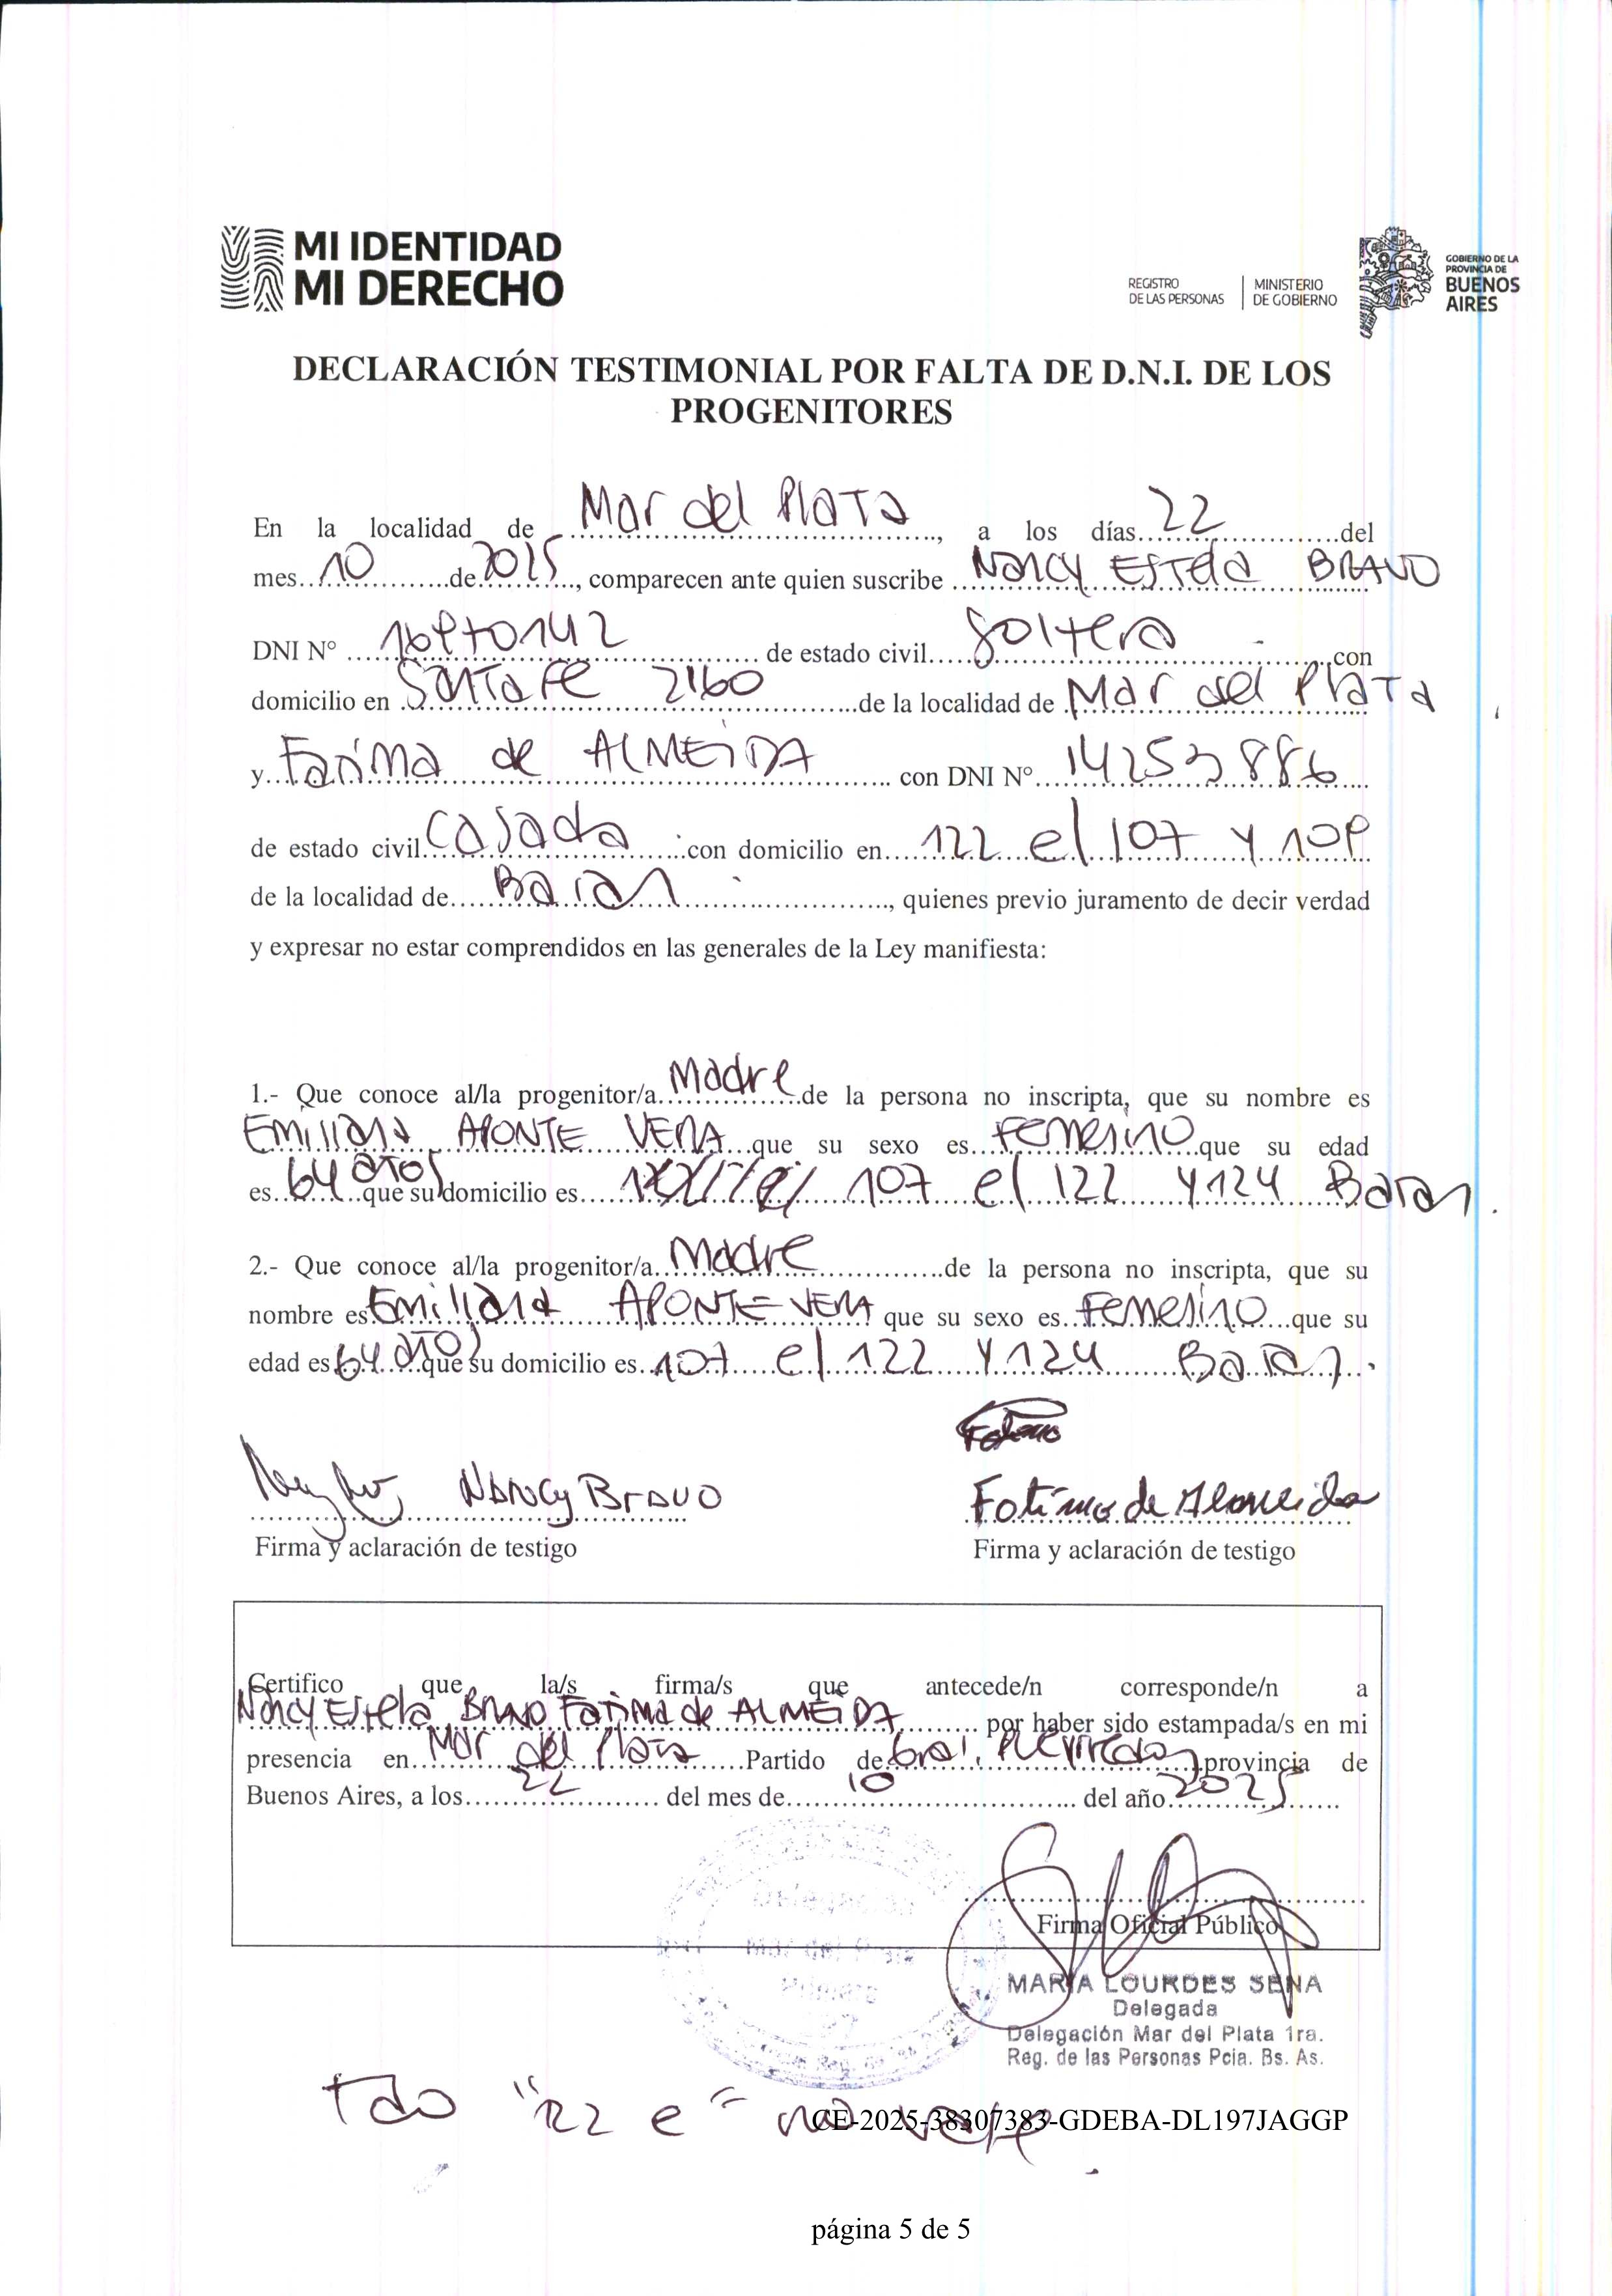 MI IDENTIDAD
MI DERECHO
REGISTRO
DE LAS PERSONAS
MINISTERIO
DE GOBIERNO
GOBIERNO DE LA
PROVINCIA DE
BUENOS
AIRES
DECLARACIÓN TESTIMONIAL POR FALTA DE D.N.I. DE LOS
PROGENITORES
En la localidad de Mar del Plata, a los días 22 del
mes 10 de 2025, comparecen ante quien suscribe Nancy Estela BRAVO
DNI N° de estado civil Soltera con
domicilio en Santa Fe 2160 de la localidad de Mar del Plata
y Fatima de ALMEIDA con DNI N° 14253886
de estado civil Casada con domicilio en 122 e/ 107 y 109
de la localidad de, quienes previo juramento de decir verdad
y expresar no estar comprendidos en las generales de la Ley manifiesta:
1.- Que conoce al/la progenitor/a Madre de la persona no inscripta, que su nombre es
Emiliana APONTE VERA que su sexo es Femenino que su edad
es 64 años que su domicilio es 107 e/ 122 y 124
2.- Que conoce al/la progenitor/a Madre de la persona no inscripta, que su
nombre es Emiliana APONTE VERA que su sexo es Femenino que su
edad es 64 años que su domicilio es 107 e/ 122 y 124
Nancy Bravo
Fatima de Almeida
Firma y aclaración de testigo
Firma y aclaración de testigo
Certifico que la/s firma/s que antecede/n corresponde/n a
Nancy Estela BRAVO Fatima de ALMEIDA por haber sido estampada/s en mi
presencia en Mar del Plata Partido de Gral. Pueyrredon provincia de
Buenos Aires, a los 22 del mes de 10 del año 2025
Firma Oficial Público
MARIA LOURDES SENA
Delegada
Delegación Mar del Plata 1ra.
Reg. de las Personas Pcia. Bs. As.
Tdo "122 e" no vale
CE-2025-38307383-GDEBA-DL197JAGGP
página 5 de 5